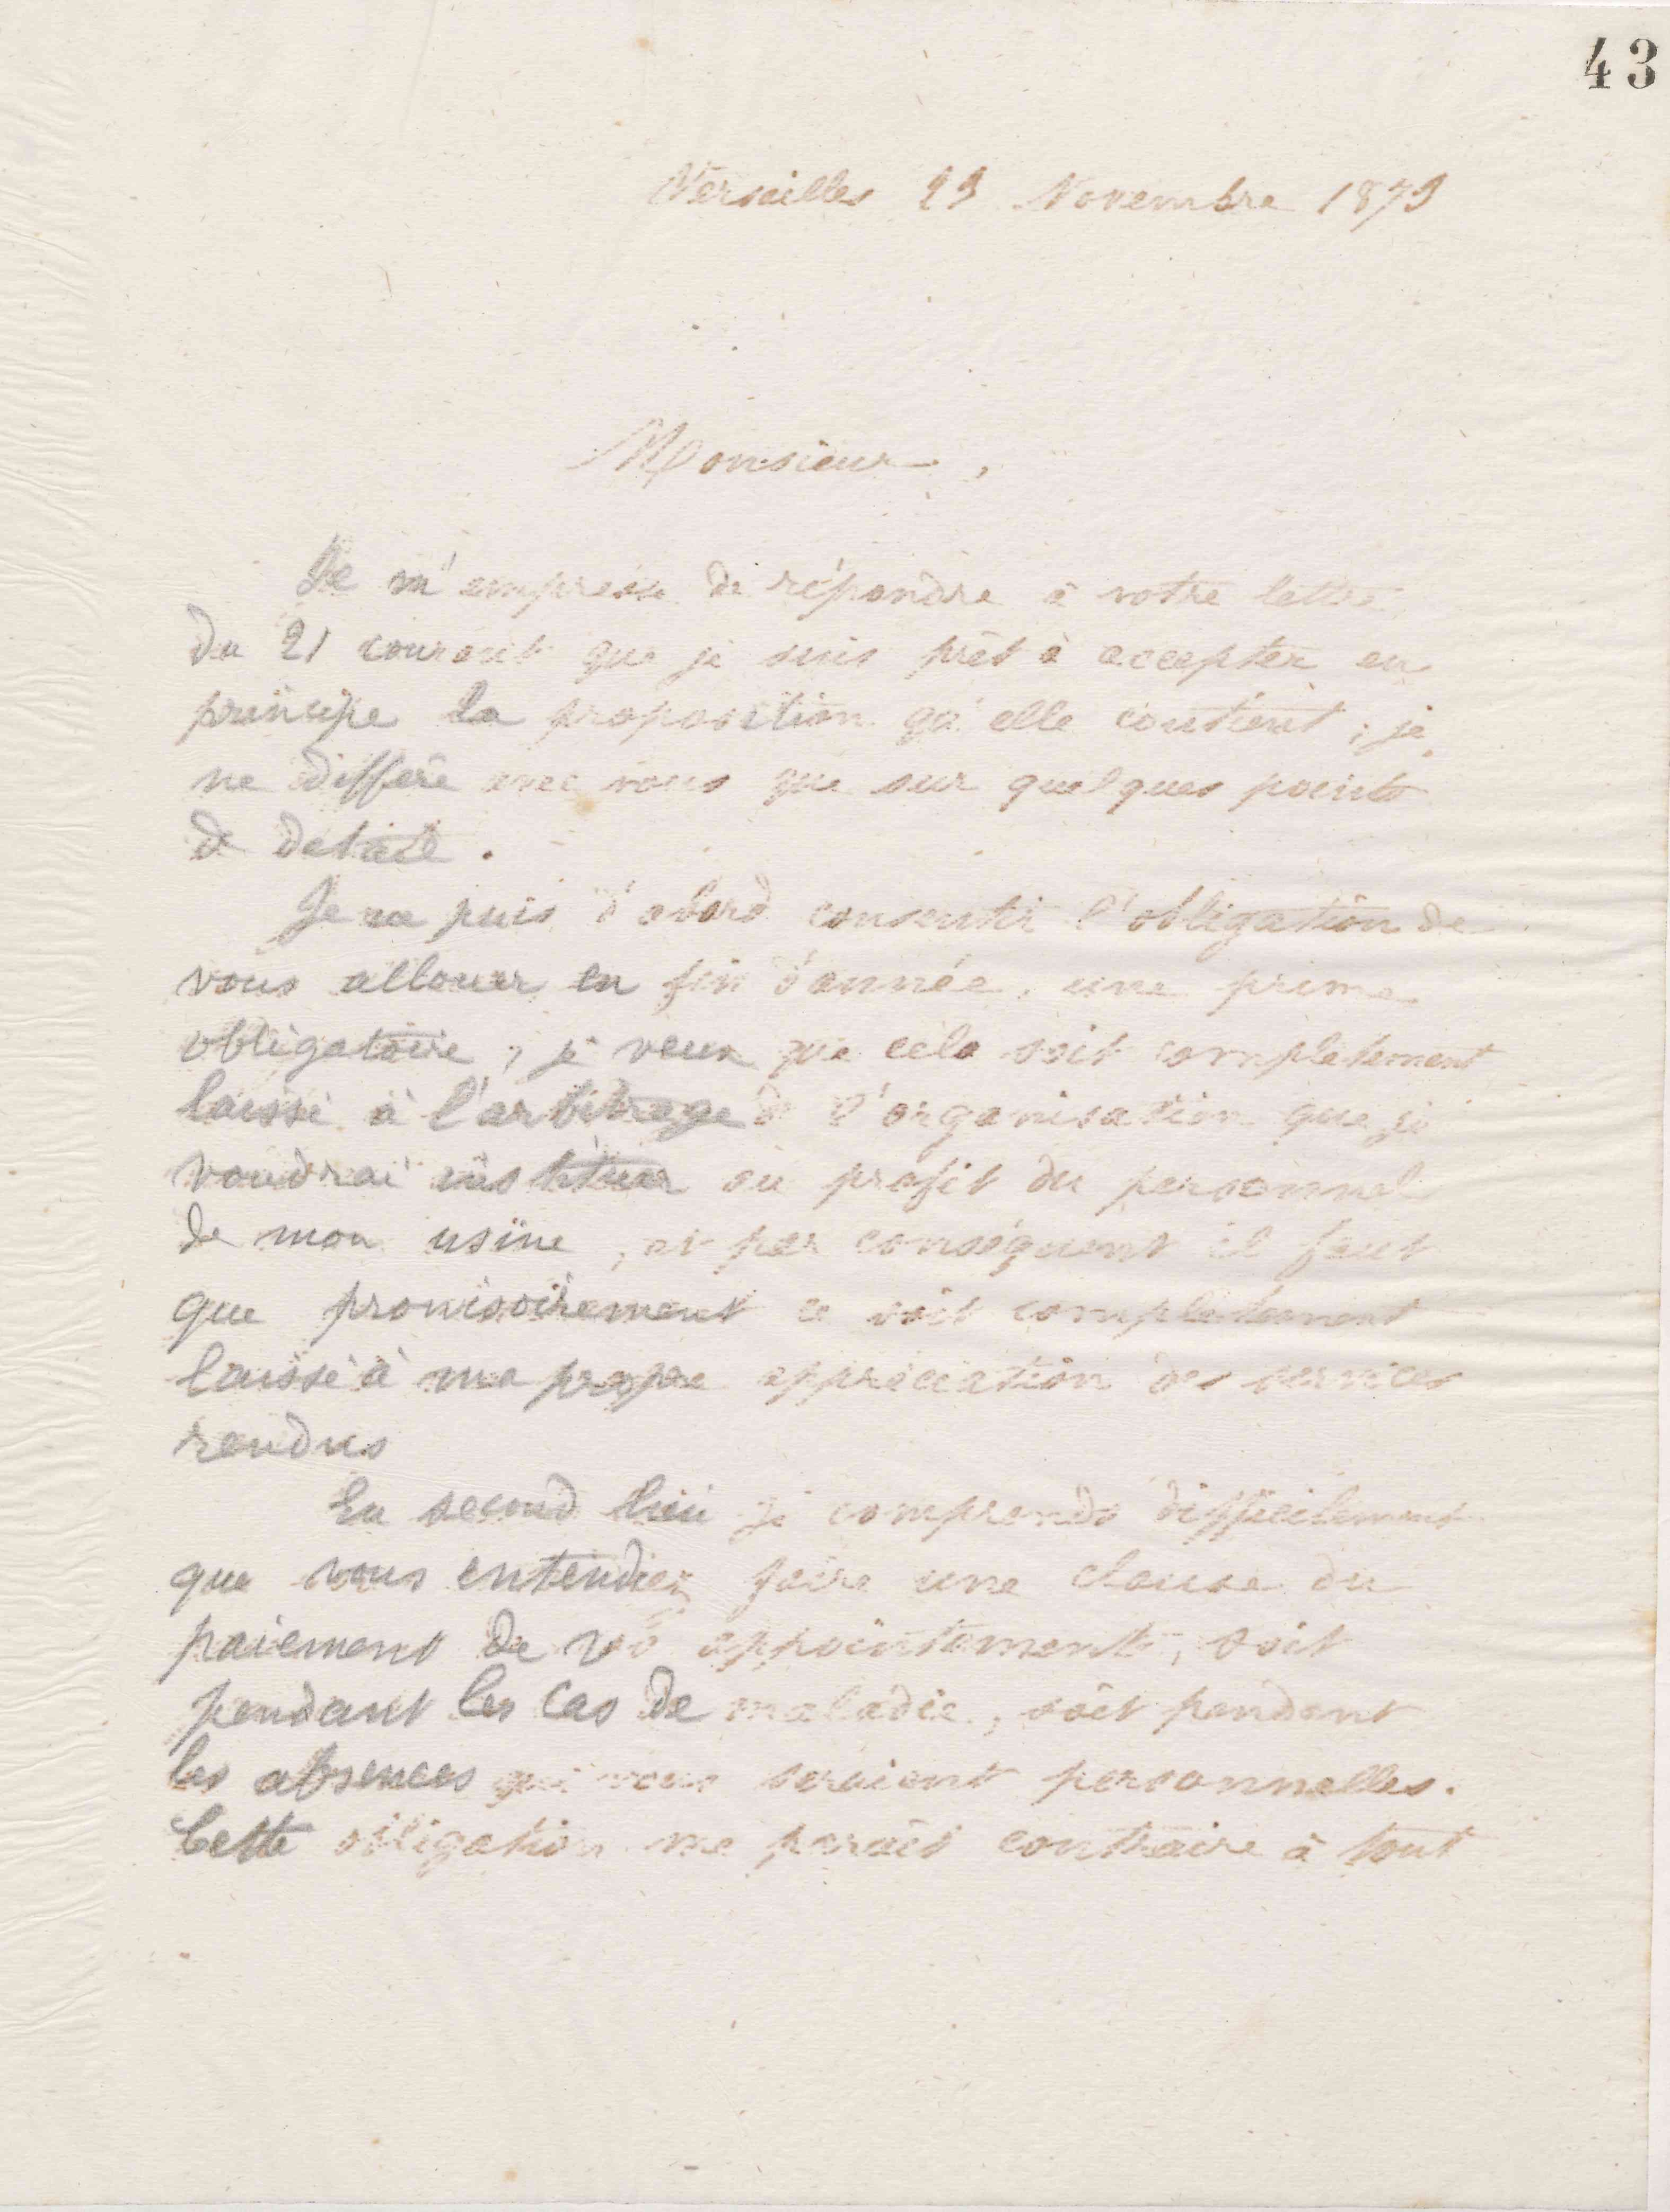 43
Versailles 23 Novembre 1873
Monsieur,
Je m'empresse de répondre à votre lettre
du 21 courant que je suis prêt à accepter en
principe la proposition qu'elle contient ; je
ne diffère avec vous que sur quelques points
de detail.
Je ne puis d'abord consentir l'obligation de
vous allouer en fin d'année, une prime
obligatoire, je veux que cela soit completement
laissé à l'arbitrage de l'organisation que je
voudrai instituer au profit du personnel
de mon usine, et par conséquent il faut
que provisoirement ce soit completement
laissé à ma propre appréciation des services
rendus
En second lieu je comprends difficilement
que vous entendiez faire une clause du
paiement de vos appointements, soit
pendant les cas de maladie, soit pendant
les absences qui vous seraient personnelles.
Cette obligation me parait contraire à tout